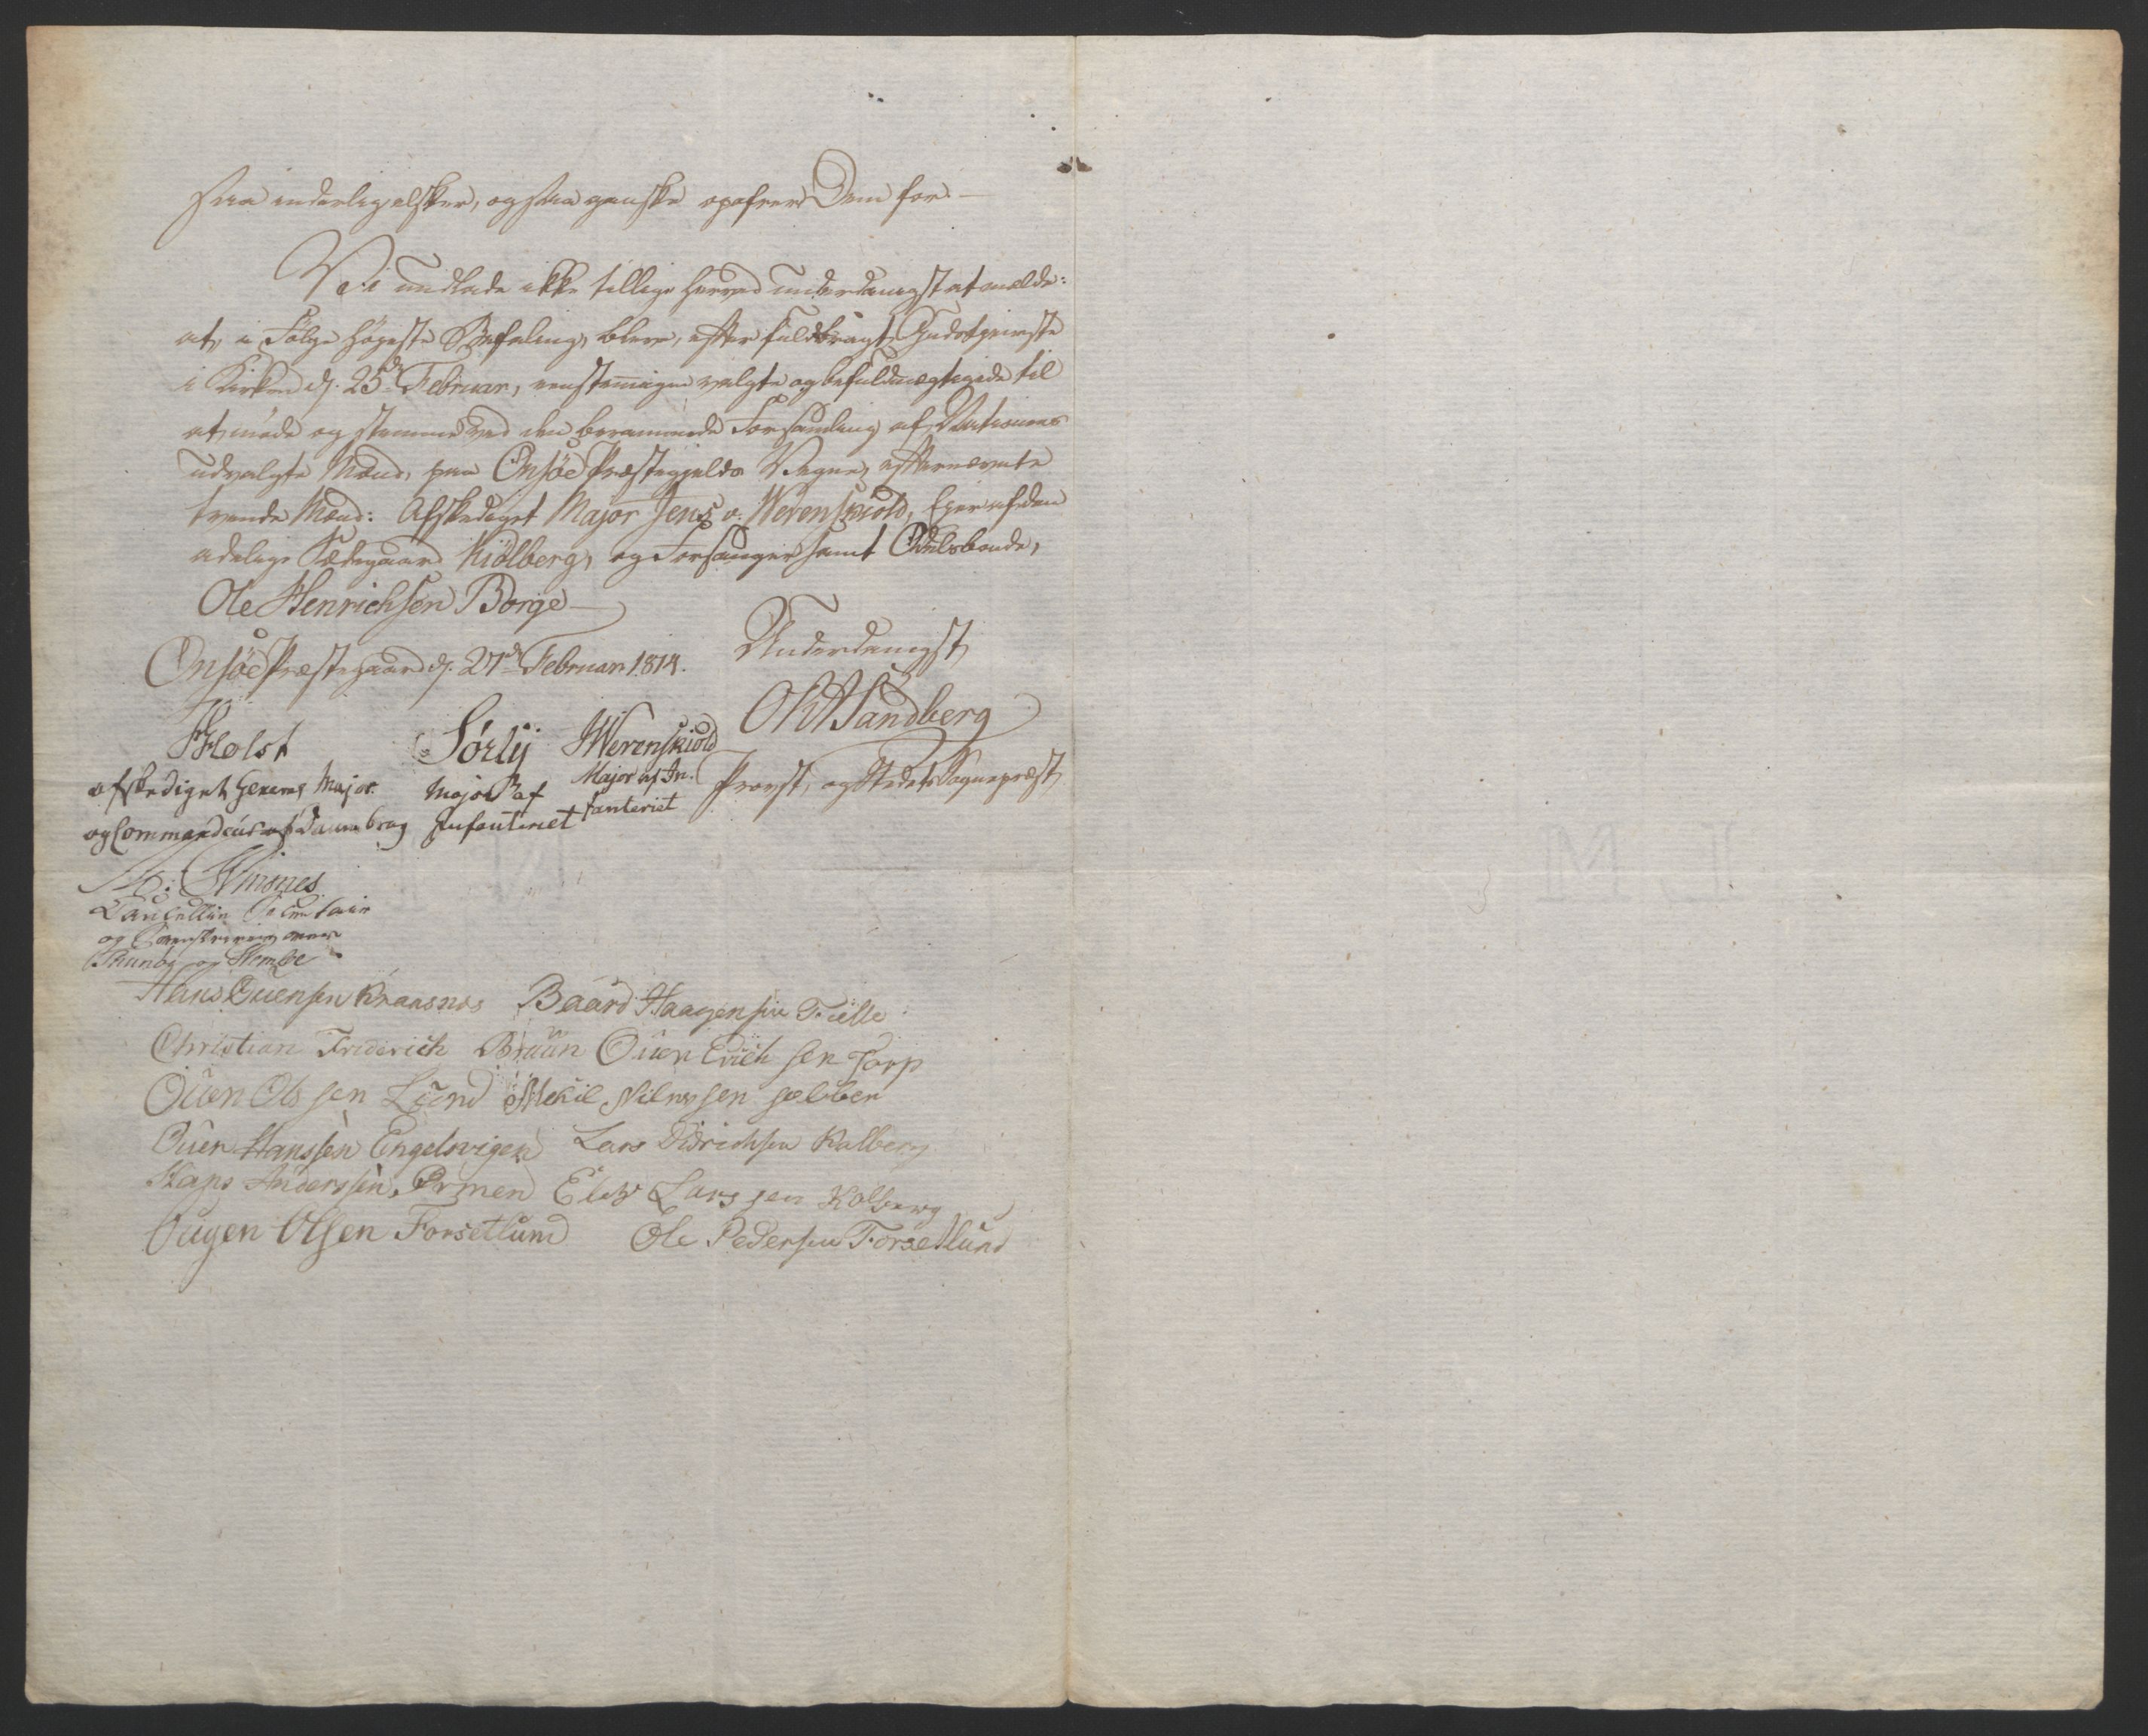 saa inderlig elsker, og saa ganske opofrer Dem for. —
Vi undlade ikke tillige herved underdanigst at melde:
at, i Følge høyeste Befaling, bleve, efter fuldbragt Gudstjeneste
i Kirken d. 25de Februar, eenstemmigen valgte og befuldmægtigede til
at møde og stemme ved den berammede Forsamling af Nationens
udvalgte Mænd, paa Onsøe Præstegjelds Vegne, efternævnte
tvende Mænd: Afskediget Major Jens v. Werenskiold, Eyer af den
adelige Sædegaard Kiölberg, og Forsanger samt Odelsbonde,
Ole Henrichsen Borge —
Onsöe Præstegaard d. 27de Februar 1814.
Underdanigst
OR Sandberg
Provst, og Stedets Sognepræst
Holst
afskediget General Major
og Commandeur af Dannebrog
Sörlij
Major af
Infanteriet
JWerenskiold
Major af In-
fanteriet
Wisnes
Cancellie
og Sorenskriver over
Thunöe og
Hans Ouensen Kraasnes Baard Haagensen Tielle
Christian Friderich Bruun Ouen Erich sen Torp
Ouen Ols sen Lund Mekil Nilussen sælben
Ouen Hanssen Engelsvigen Lars Didrichsen Kalberg
Hans Anderssen Ormen Elias Lars sen Kolberg
Ougen Olsen Forsetlund Ole Pedersen Forsetlund